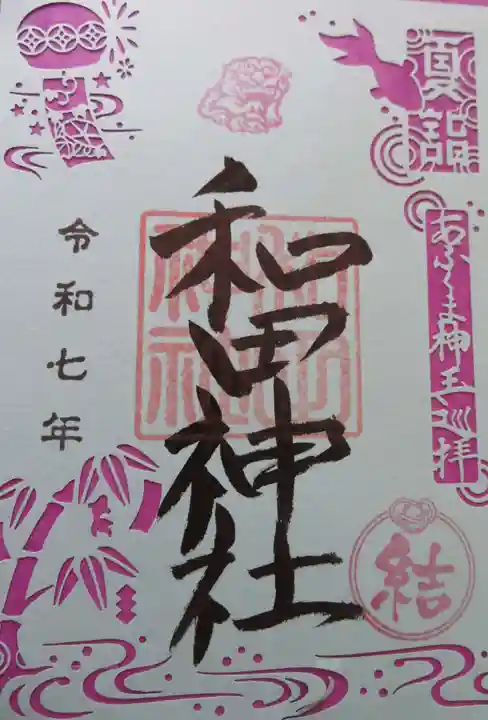 夏詣
あふくま神玉巡拝
和田神社
令和七年
結